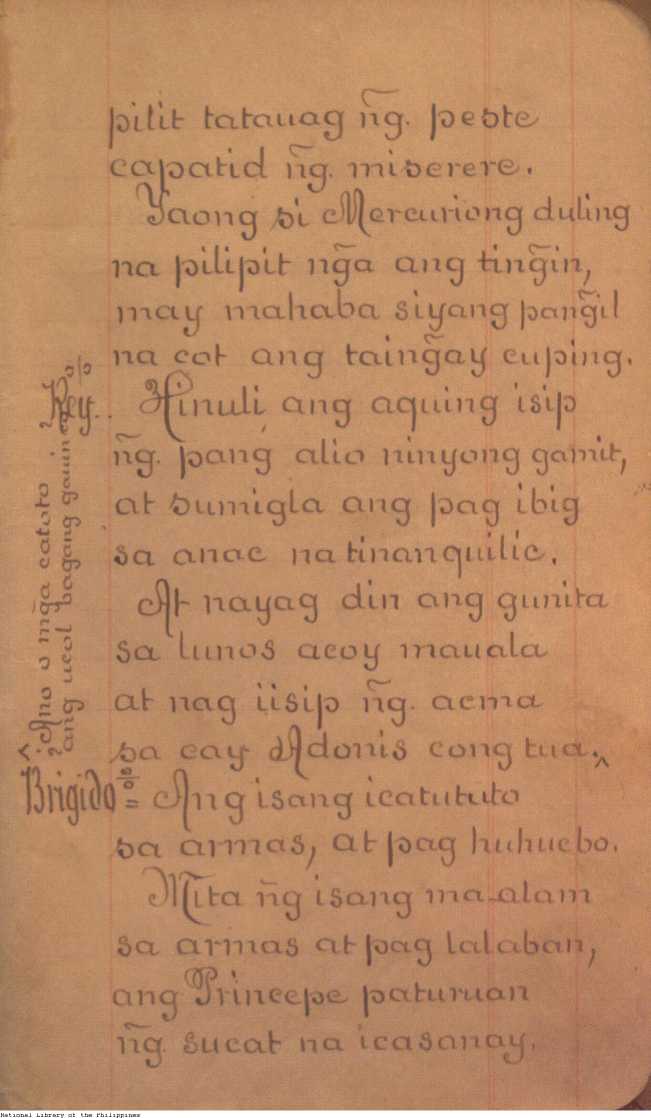 pilit tatauag ñg. peste
capatid ñg. miserere.
Yaong si Mercuriong duling
na pilipit ng̃a ang ting̃in,
may mahaba siyang pang̃il
na cot ang taing̃ay cuping.
Key.. Hinuli ang aquing isip
ñg. pang alio ninyong gamit,
at sumigla ang pag ibig
sa anac na tinanquilic.
At nayag din ang gunita
sa lunos acoy mauala
at nag iisip ñg. acma
sa cay Adonis cong tua.^
^ ¿Ano o mg̃a catoto
?ang ucol bagang gauin
Brigido % = Ang isang icatututo
sa armas, at pag huhucbo.
Mita ñg isang ma-alam
sa armas at pag lalaban,
ang Princepe paturuan
ñg. sucat na icasanay.
National Library of the Philippines